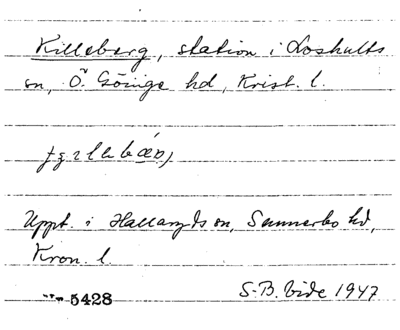 Killeberg, station i Loshults
sn, Ö. Göinge hd, Krist. l.
Uppt. i Hallaryds sn, Sunnerbo hd,
Kron. l.
5428 S.B. Vide 1947